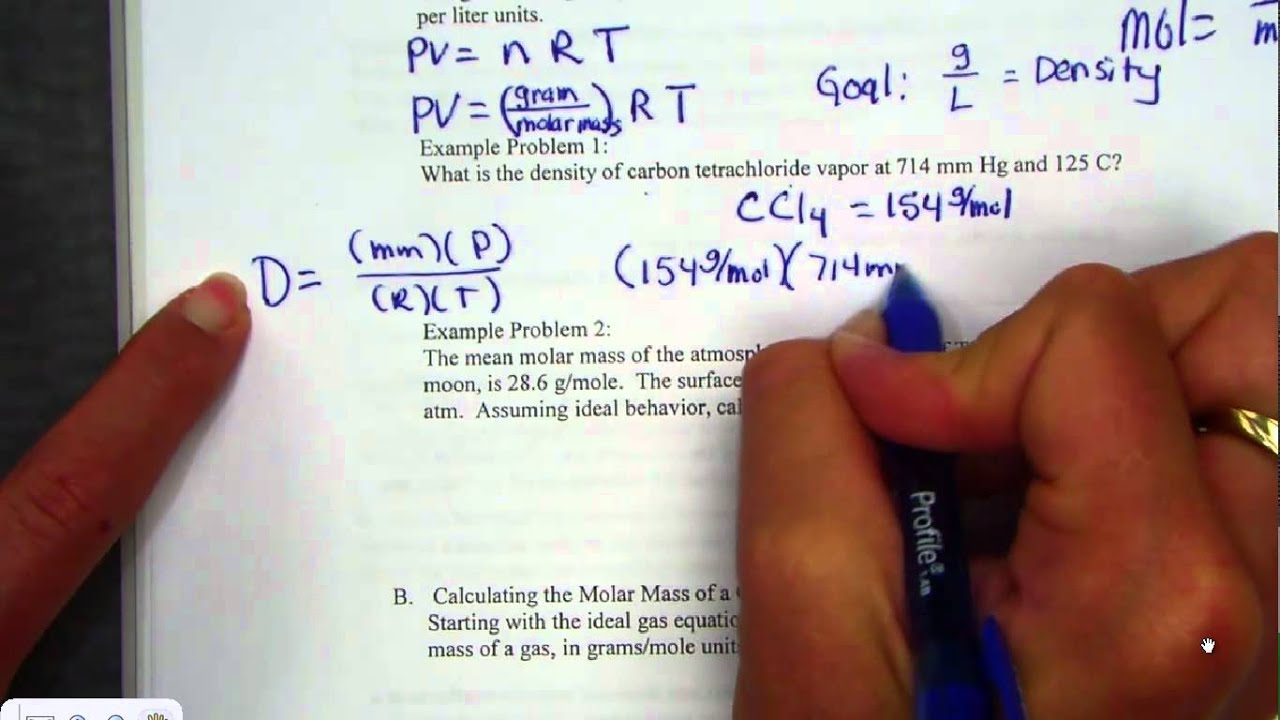 per liter units.
mol=
PV = n R T
Goal: g/L = Density
PV = (gram/molar mass) R T
Example Problem 1:
What is the density of carbon tetrachloride vapor at 714 mm Hg and 125 C?
CCl4 = 154 g/mol
D = (mm)(P)/(R)(T) (154 g/mol)(714 m
Example Problem 2:
The mean molar mass of the
moon, is 28.6 g/mole. The surface
atm. Assuming ideal behavior,
B. Calculating the Molar Mass of a
Starting with the ideal gas
mass of a gas, in grams/mole
Profile